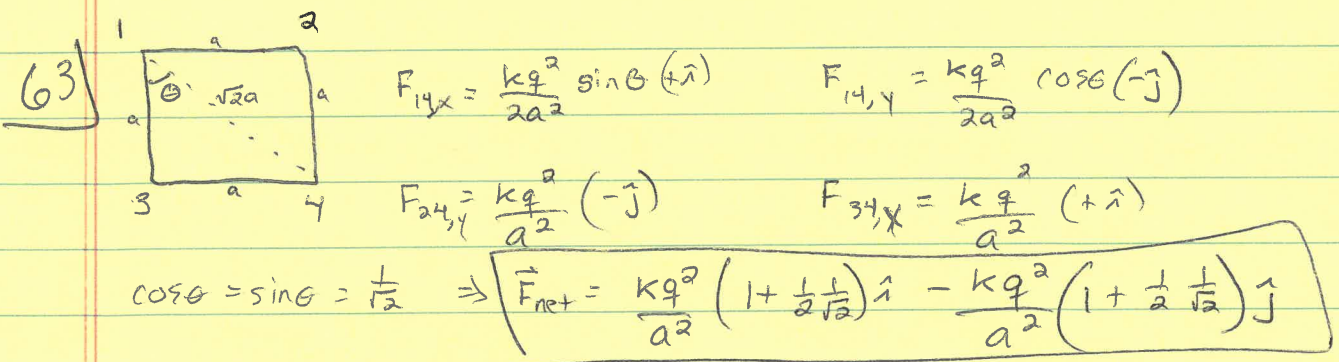 1 2
a
63)
θ √2a
a a
a
3 4
F₁₄,ₓ = kq²/2a² sinθ (+î) F₁₄,y = kq²/2a² cosθ (-ĵ)
F₂₄,y = kq²/a² (-ĵ) F₃₄,ₓ = kq²/a² (+î)
cosθ = sinθ = 1/√2 ⇒ F⃗net = kq²/a² (1 + 1/2 1/√2) î - kq²/a² (1 + 1/2 1/√2) ĵ